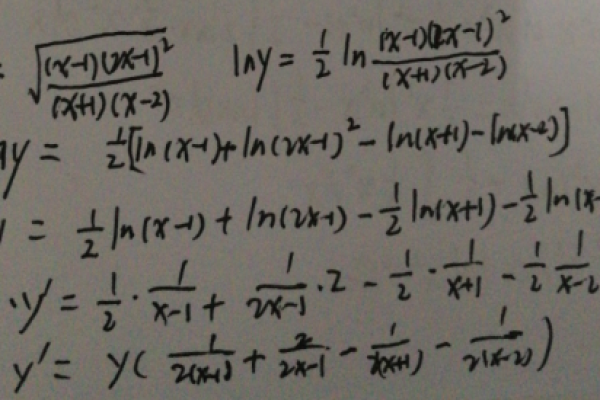 = √((x-1)(2x-1)²/(x+1)(x-2))  lny = 1/2 ln (x-1)(2x-1)²/(x+1)(x-2)
ny = 1/2[ln(x-1)+ln(2x-1)²-ln(x+1)-ln(x-2)]
= 1/2 ln(x-1)+ln(2x-1)-1/2 ln(x+1)-1/2 ln(x-
·y' = 1/2·1/(x-1)+1/(2x-1)·2-1/2·1/(x+1)-1/2 1/(x-2
y' = y(1/2(x-1)+2/(2x-1)-1/2(x+1)-1/2(x-2))